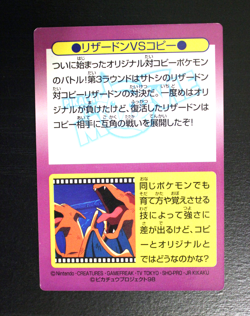 ●リザードンVSコピー●
ついに始まったオリジナル対コピーポケモン
のバトル!第3ラウンドはサトシのリザードン
対コピーリザードンの対決だ。一度めはオリ
ジナルが負けたけど、復活したリザードンは
コピー相手に互角の戦いを展開したぞ!
同じポケモンでも
育て方や覚えさせる
技によって強さに
差が出るけど、コピ
ーとオリジナルと
ではどうなのかな?
©Nintendo・CREATURES・GAMEFREAK・TV TOKYO・SHO-PRO・JR KIKAKU
©ピカチュウプロジェクト98